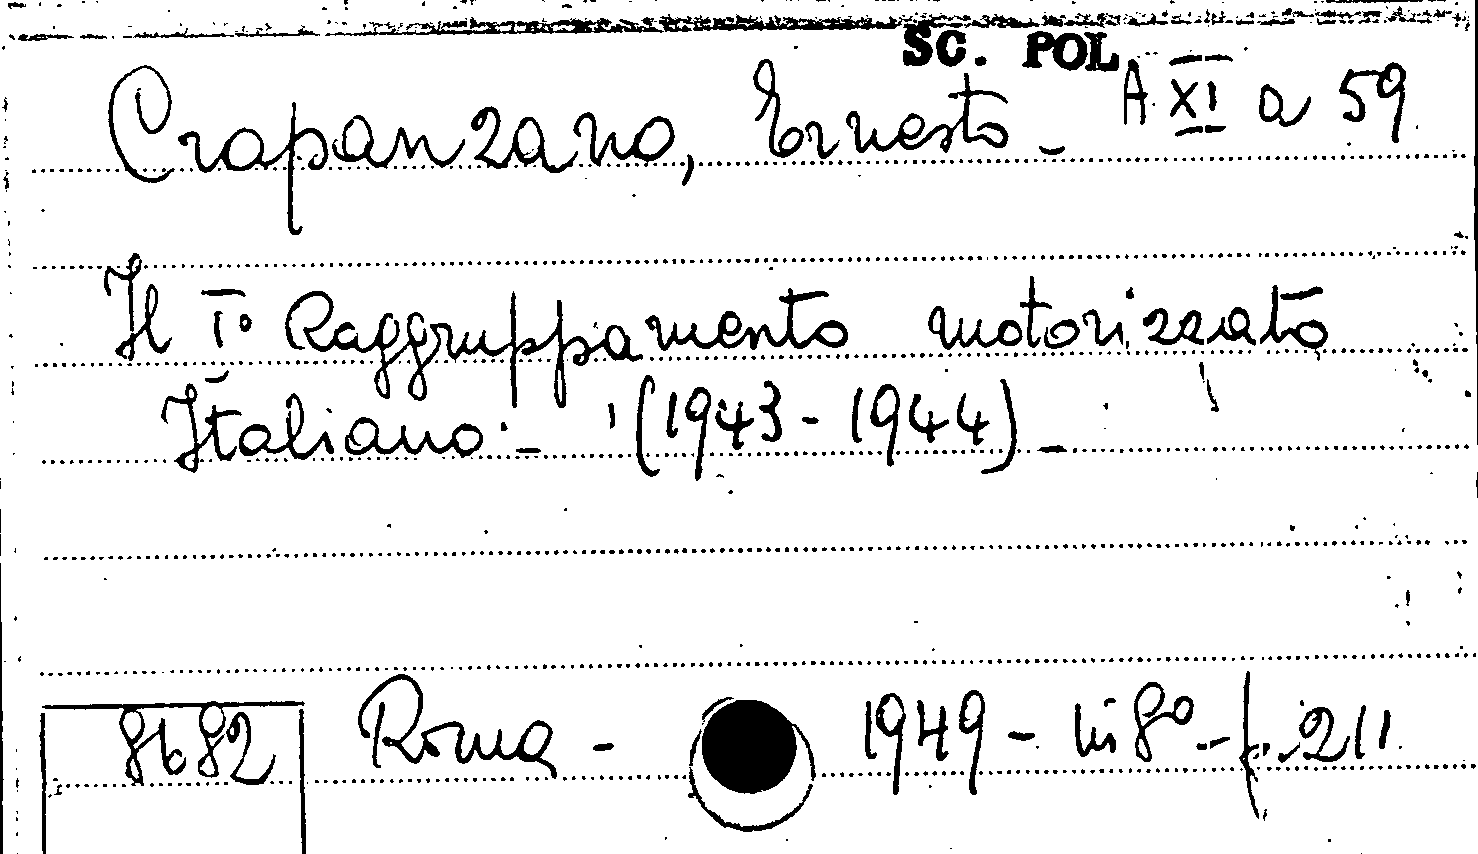 SC. POL
Crapanzano, Ernesto - A XI a 59
Il I° Raggruppamento motorizzato
Italiano - (1943 - 1944) -
8682 Roma - 1949 - in 8° - p. 211